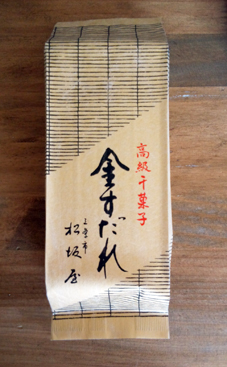 高級干菓子
金すだれ
松坂屋